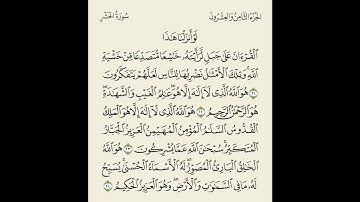 الجزء الثامن والعشرون سورة الحشر
لَوْ أَنزَلْنَا هَٰذَا
الْقُرْءَانَ عَلَىٰ جَبَلٍ لَّرَأَيْتَهُۥ خَٰشِعًا مُّتَصَدِّعًا مِّنْ خَشْيَةِ
اللَّهِ وَتِلْكَ الْأَمْثَٰلُ نَضْرِبُهَا لِلنَّاسِ لَعَلَّهُمْ يَتَفَكَّرُونَ
٢١ هُوَ اللَّهُ الَّذِى لَآ إِلَٰهَ إِلَّا هُوَ عَٰلِمُ الْغَيْبِ وَالشَّهَٰدَةِ
هُوَ الرَّحْمَٰنُ الرَّحِيمُ ٢٢ هُوَ اللَّهُ الَّذِى لَآ إِلَٰهَ إِلَّا هُوَ الْمَلِكُ
الْقُدُّوسُ السَّلَٰمُ الْمُؤْمِنُ الْمُهَيْمِنُ الْعَزِيزُ الْجَبَّارُ
الْمُتَكَبِّرُ سُبْحَٰنَ اللَّهِ عَمَّا يُشْرِكُونَ ٢٣ هُوَ اللَّهُ
الْخَٰلِقُ الْبَارِئُ الْمُصَوِّرُ لَهُ الْأَسْمَآءُ الْحُسْنَىٰ يُسَبِّحُ
لَهُۥ مَا فِى السَّمَٰوَٰتِ وَالْأَرْضِ وَهُوَ الْعَزِيزُ الْحَكِيمُ ٢٤